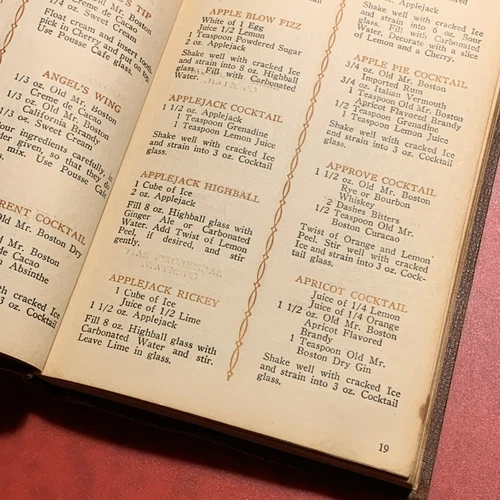 'S TIP
Creme de Cacao
1/4 oz. Sweet Cream
Float cream and insert tooth-
pick in Cherry and put on top.
Use Pousse Cafe glass.
ANGEL'S WING
1/3 oz. Old Mr. Boston
Creme de Cacao
1/3 oz. Old Mr. Boston
California Brandy
1/3 oz. Sweet Cream
our ingredients carefully, in
der given, so that they do
mix. Use Pousse Cafe
RENT COCKTAIL
Old Mr. Boston Dry
Mr. Boston
de Cacao
Absinthe
with cracked Ice
3 oz. Cocktail
APPLE BLOW FIZZ
White of 1 Egg
Juice 1/2 Lemon
1 Teaspoon Powdered Sugar
2 oz. Applejack
Shake well with cracked Ice
and strain into 8 oz. Highball
glass. Fill with Carbonated
Water.
APPLEJACK COCKTAIL
1 1/2 oz. Applejack
1 Teaspoon Grenadine
1 Teaspoon Lemon Juice
Shake well with cracked Ice
and strain into 3 oz. Cocktail
glass.
APPLEJACK HIGHBALL
1 Cube of Ice
2 oz. Applejack
Fill 8 oz. Highball glass with
Ginger Ale or Carbonated
Water. Add Twist of Lemon
Peel, if desired, and stir
gently.
APPLEJACK RICKEY
1 Cube of Ice
Juice of 1/2 Lime
1 1/2 oz. Applejack
Fill 8 oz. Highball glass with
Carbonated Water and stir.
Leave Lime in glass.
Applejack
Shake well with cracked Ice
and strain into 6 oz. Sour
glass. Fill with Carbonated
Water. Decorate with a slice
of Lemon and a Cherry.
APPLE PIE COCKTAIL
3/4 oz. Old Mr. Boston
Imported Rum
3/4 oz. Italian Vermouth
1 Teaspoon Old Mr. Boston
Apricot Flavored Brandy
1/2 Teaspoon Grenadine
1 Teaspoon Lemon Juice
Shake well with cracked Ice
and strain into 3 oz. Cocktail
glass.
APPROVE COCKTAIL
1 1/2 oz. Old Mr. Boston
Rye or Bourbon
Whiskey
2 Dashes Bitters
1/2 Teaspoon Old Mr.
Boston Curacao
Twist of Orange and Lemon
Peel. Stir well with cracked
Ice and strain into 3 oz. Cock-
tail glass.
APRICOT COCKTAIL
Juice of 1/4 Lemon
Juice of 1/4 Orange
1 1/2 oz. Old Mr. Boston
Apricot Flavored
Brandy
1 Teaspoon Old Mr.
Boston Dry Gin
Shake well with cracked Ice
and strain into 3 oz. Cocktail
glass.
19